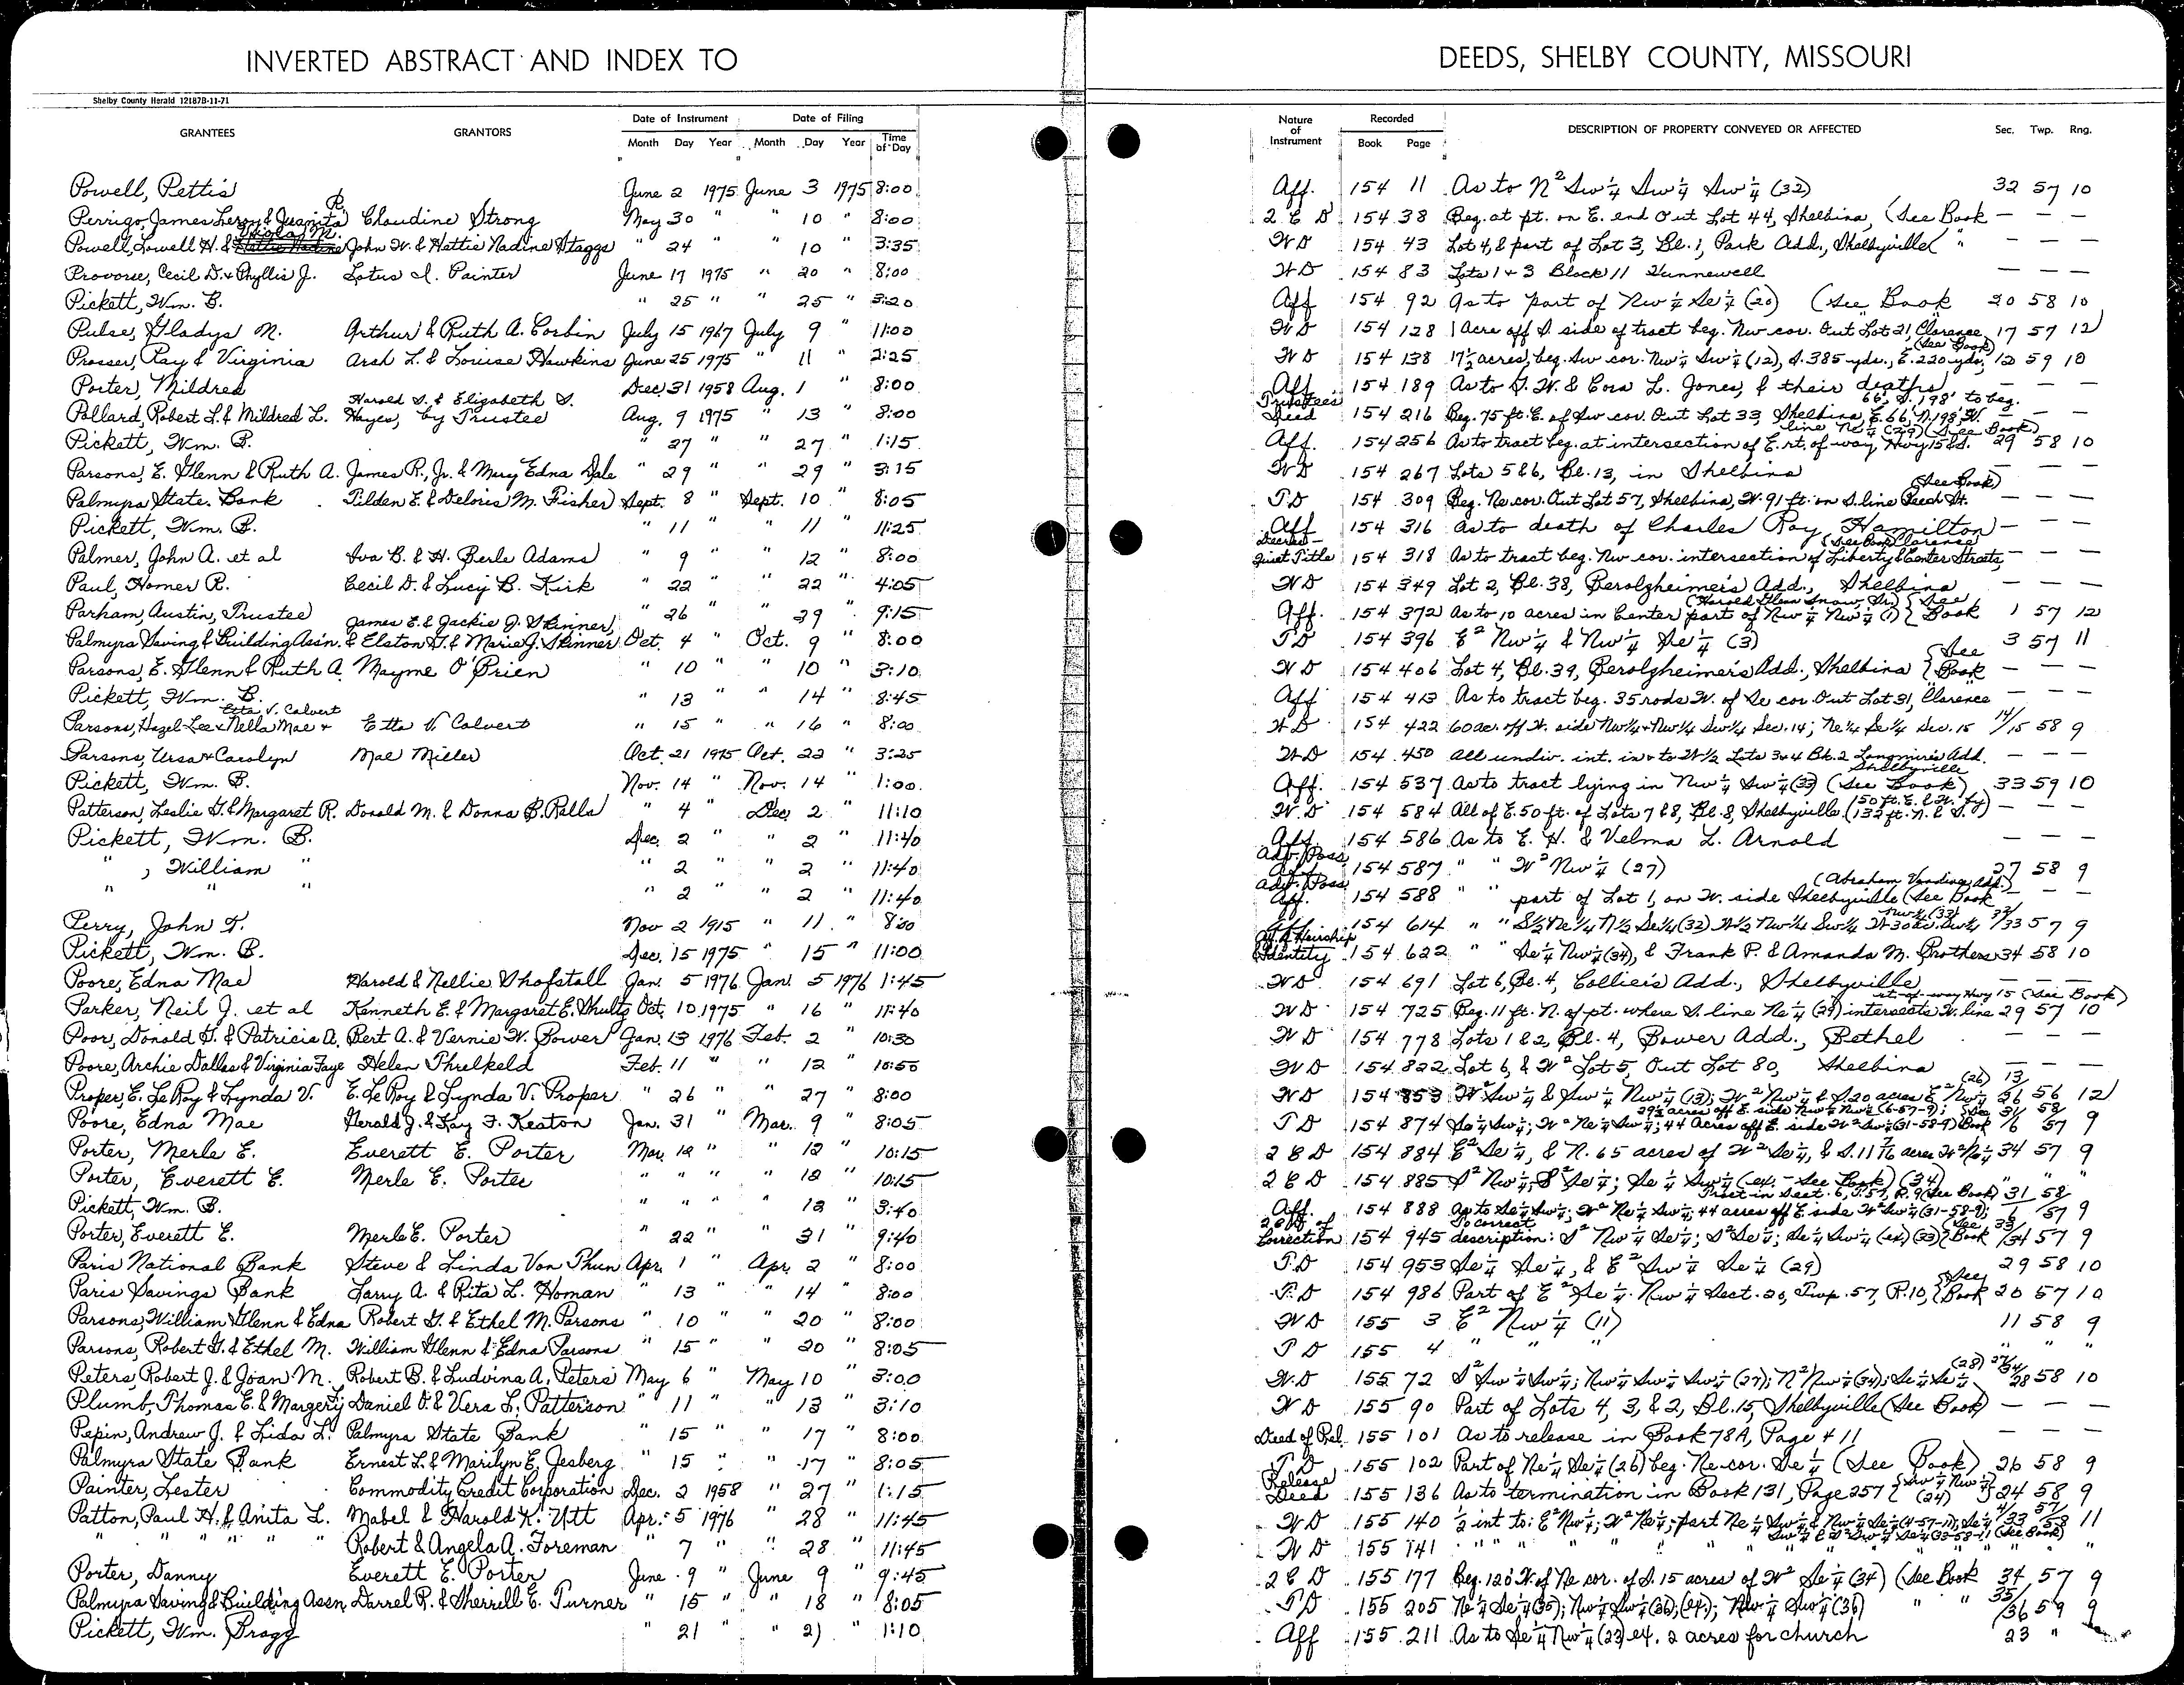 INVERTED ABSTRACT AND INDEX TO
DEEDS, SHELBY COUNTY, MISSOURI
Shelby County Herald 12187B-11-71
GRANTEES GRANTORS Date of Instrument Month Day Year Date of Filing Month Day Year Time of Day Nature of Instrument Recorded Book Page DESCRIPTION OF PROPERTY CONVEYED OR AFFECTED Sec. Twp. Rng.
Powell, Pettis June 2 1975 June 3 1975 8:00 Aff. 154 11 As to N² Sw¼ Sw¼ Sw¼ (32) 32 57 10
Perrigo, James Leroy & Juanita R. Claudine Strong May 30 " " 10 " 8:00 2 E D 154 38 Beg. at pt. on E. end Out Lot 44, Shelbina, (See Book — — —
Powell, Lowell H. & Viola M. John W. & Hattie Nadine Staggs " 24 " 10 3:35 W D 154 43 Lot 4, & part of Lot 3, Bl. 1, Park Add., Shelbyville ( " — — —
Provorse, Cecil D. & Phyllis J. Lotus I. Painter June 17 1975 " 20 " 8:00 W D 154 83 Lots 1 + 3 Block 11 Hunnewell — — —
Pickett, Wm. B. " 25 " " 25 " 3:20 Aff 154 92 As to part of Nw¼ Se¼ (20) (See Book 20 58 10
Pulse, Gladys M. Arthur & Ruth A. Corbin July 15 1967 July 9 " 11:00 W D 154 128 1 acre off S. side of tract beg. Nw cor. Out Lot 21, Clarence (See Book) 17 57 12
Prosser, Ray & Virginia Arah L. & Louise Hawkins June 25 1975 " 11 " 2:25 W D 154 138 17½ acres, beg. Sw cor. Nw¼ Sw¼ (12), S. 385 yds., E. 220 yds. 12 59 10
Porter, Mildred Dec. 31 1958 Aug. 1 " 8:00 Aff 154 189 As to S. W. & Cora L. Jones, & their deaths — — —
Pollard, Robert L. & Mildred L. Harold S. & Elizabeth S. Hayes, by Trustee Aug. 9 1975 " 13 " 8:00 Trustee's Deed 154 216 Beg. 75 ft. E. of Sw cor. Out Lot 33, Shelbina, E. 66', N. 198', W. 66', S. 198' to beg. — — —
Pickett, Wm. B. " 27 " " 27 " 1:15 Aff. 154 256 As to tract beg. at intersection of E. rt. of way Hwy 15 & S. line Ne¼ (29) (See Book) 29 58 10
Parsons, E. Glenn & Ruth A. James R., Jr. & Mary Edna Dale " 29 " " 29 " 3:15 W D 154 267 Lots 5 & 6, Bl. 13, in Shelbina — — —
Palmyra State Bank Tilden E. & Deloris M. Fisher Sept. 8 " Sept. 10 " 8:05 T D 154 309 Beg. Ne cor. Out Lot 57, Shelbina, W. 91 ft. on S. line Beech St. (See Book) — — —
Pickett, Wm. B. " 11 " " 11 " 11:25 Aff 154 316 As to death of Charles Roy Hamilton — — —
Palmer, John A. et al Iva B. & H. Berle Adams " 9 " " 12 " 8:00 Decree - Quiet Title 154 318 As to tract beg. Nw cor. intersection of Liberty & Center Streets, (See Book) Clarence — — —
Paul, Homer R. Cecil D. & Lucy B. Kirk " 22 " " 22 " 4:05 W D 154 349 Lot 2, Bl. 38, Berolzheimer's Add., Shelbina — — —
Parham, Austin, Trustee " 26 " " 29 " 9:15 Aff. 154 372 As to 10 acres in Center part of Nw¼ Nw¼ (1) (Harold Glenn Snow, Sr.) (See Book 1 57 12
Palmyra Saving & Building Assn. James E. & Jackie J. Skinner, & Elston G. & Marie J. Skinner Oct. 4 " Oct. 9 " 8:00 T D 154 396 E² Nw¼ & Nw¼ Se¼ (3) 3 57 11
Parsons, E. Glenn & Ruth A. Mayme O'Brien " 10 " " 10 " 3:10 W D 154 406 Lot 4, Bl. 39, Berolzheimer's Add., Shelbina (See Book — — —
Pickett, Wm. B. " 13 " 14 " 8:45 Aff 154 413 As to tract beg. 35 rods W. of Se cor. Out Lot 31, Clarence — — —
Parsons, Hazel Lee & Nella Mae + Etta V. Calvert Etta V. Calvert " 15 " " 16 " 8:00 W D 154 422 60 ac. off W. side Nw¼ + Nw¼ Sw¼ Sec. 14; Ne¼ Se¼ Sec. 15 14/15 58 9
Parsons, Ursa & Carolyn Mae Miller Oct. 21 1975 Oct. 22 " 3:25 W D 154 450 All undiv. int. in & to W½ Lots 3 & 4 Bk. 2 Longmire's Add. Shelbyville — — —
Pickett, Wm. B. Nov. 14 " Nov. 14 " 1:00 Aff. 154 537 As to tract lying in Nw¼ Sw¼ (33) (See Book) 33 59 10
Patterson, Leslie G. & Margaret R. Donald M. & Donna B. Rella " 4 " Dec. 2 " 11:10 W. D 154 584 All of E. 50 ft. of Lots 7 & 8, Bl. 8, Shelbyville (50 ft. E. & W. by 132 ft. N. & S.) — — —
Pickett, Wm. B. Dec. 2 " " 2 " 11:40 Aff. 154 586 As to E. H. & Velma L. Arnold — — —
" , William " " 2 " " 2 " 11:40 Adv. Poss. Aff. 154 587 " " W² Nw¼ (27) 27 58 9
" " " " 2 " " 2 " 11:40 Adv. Poss. Aff. 154 588 " " part of Lot 1, on W. side Shelbyville (See Book (Abraham Vandiver Add.) — — —
Perry, John F. Nov 2 1915 " 11 " 8:00 Aff 154 614 " " S½ Ne¼ N½ Se¼ (32) N½ Nw¼ Sw¼ W 30 ac. Sw¼ Nw¼ (33) 32/33 57 9
Pickett, Wm. B. Dec. 15 1975 " 15 " 11:00 Aff. of Heirship Identity 154 622 " " Se¼ Nw¼ (34), & Frank P. & Amanda M. Brothers 34 58 10
Poore, Edna Mae Harold & Nellie Shofstall Jan. 5 1976 Jan. 5 1976 1:45 W D 154 691 Lot 6, Bl. 4, Collier's Add., Shelbyville — — —
Parker, Neil J. et al Kenneth E. & Margaret E. Shultz Oct. 10 1975 " 16 " 11:40 W D 154 725 Beg. 11 ft. N. of pt. where S. line Ne¼ (29) intersects W. line rt-of-way Hwy 15 (See Book) 29 57 10
Poor, Donald G. & Patricia A. Bert A. & Vernie W. Bower Jan. 13 1976 Feb. 2 " 10:30 W D 154 778 Lots 1 & 2, Bl. 4, Bower Add., Bethel — — —
Poore, Archie Dallas & Virginia Faye Helen Threlkeld Feb. 11 " " 12 " 10:50 W D 154 822 Lot 6, & W² Lot 5, Out Lot 80, Shelbina — — —
Proper, E. LeRoy & Lynda V. E. LeRoy & Lynda V. Proper " 26 " " 27 " 8:00 W D 154 853 W² Sw¼ & Sw¼ Nw¼ (13); W² Nw¼ & S. 20 acres E² Nw¼ (26) 13/26 56 12
Poore, Edna Mae Gerald J. & Kay F. Keaton Jan. 31 " Mar. 9 " 8:05 T D 154 874 Se¼ Sw¼; W² Ne¼ Sw¼; 44 Acres off E. side W² Sw¼ (31-58-9) 29½ acres off E. side Nw¼ Nw¼ (6-57-9); (See Book 31/6 58/57 9
Porter, Merle E. Everett E. Porter Mar. 12 " " 12 " 10:15 2 E D 154 884 E² Se¼, & N. 65 acres of W² Se¼, & S. 11 7/16 acres W² Ne¼ 34 57 9
Porter, Everett E. Merle E. Porter " " " " 12 " 10:15 2 E D 154 885 S² Nw¼; S² Se¼; Se¼ Sw¼ (ex. - See Book) (34) " " "
Pickett, Wm. B. " " " " 12 " 3:40 Aff. 154 888 As to Se¼ Sw¼; W² Ne¼ Sw¼; 44 acres off E. side W² Sw¼ (31-58-9); Tract in Sect. 6, T. 57, R. 9 (See Book) 31/6 58/57 9
Porter, Everett E. Merle E. Porter " 22 " " 31 " 9:40 2 E D of Correction 154 945 To correct description: S² Nw¼ Se¼; S² Se¼; Se¼ Sw¼ (ex.) (33) (See Book 33/34 57 9
Paris National Bank Steve & Linda Von Thun Apr. 1 " Apr. 2 " 8:00 T D 154 953 Se¼ Se¼, & E² Sw¼ Se¼ (29) 29 58 10
Paris Savings Bank Larry A. & Rita L. Homan " 13 " " 14 " 8:00 T. D 154 986 Part of E² Se¼ Nw¼ Sect. 20, Twp. 57, R. 10, (See Book 20 57 10
Parsons, William Glenn & Edna Robert G. & Ethel M. Parsons " 10 " " 20 " 8:00 W D 155 3 E² Nw¼ (11) 11 58 9
Parsons, Robert G. & Ethel M. William Glenn & Edna Parsons " 15 " " 20 " 8:05 T D 155 4 " " " " " "
Peters, Robert J. & Joan M. Robert B. & Ludvina A. Peters May 6 " May 10 " 3:00 W. D 155 72 S² Sw¼ Sw¼; Nw¼ Sw¼ Sw¼ (27); N² Nw¼ (34); Se¼ Se¼ (28) 27/34/28 58 10
Plumb, Thomas E. & Margery L. Daniel O. & Vera L. Patterson " 11 " " 13 " 3:10 W D 155 90 Part of Lots 4, 3, & 2, Bl. 15, Shelbyville (See Book) — — —
Pepin, Andrew J. & Lida L. Palmyra State Bank " 15 " " 17 " 8:00 Deed of Rel. 155 101 As to release in Book 78A, Page 411 — — —
Palmyra State Bank Ernest L. & Marilyn E. Jesberg " 15 " " 17 " 8:05 T D 155 102 Part of Ne¼ Se¼ (26) beg. Ne cor. Se¼ (See Book) 26 58 9
Painter, Lester Commodity Credit Corporation Dec. 2 1958 " 27 " 1:15 Release Deed 155 136 As to termination in Book 131, Page 257 (Sw¼ Nw¼) (24) 24 58 9
Patton, Paul H. & Anita L. Mabel & Harold K. Utt Apr. 5 1976 " 28 " 11:45 W D 155 140 ½ int to: E² Nw¼; W² Ne¼; part Ne¼ Sw¼ & Nw¼ Se¼ (4-57-11); Se¼ Sw¼ & Sw¼ Se¼ (33-58-11) (See Book) 4/33 57/58 11
" " " " " Robert & Angela A. Foreman " 7 " " 28 " 11:45 W D 155 141 " " " " " " " " "
Porter, Danny Everett E. Porter June 9 " June 9 " 9:45 2 E D 155 177 Beg. 120' W. of Ne cor. of S. 15 acres of W² Se¼ (34) (See Book 34 57 9
Palmyra Saving & Building Assn. Darrel R. & Sherrill E. Turner " 15 " " 18 " 8:05 T D 155 205 Ne¼ Se¼ (35); Nw¼ Sw¼ (36); (ex.); Nw¼ Sw¼ (36) " " 35/36 59 9
Pickett, Wm. Bragg " 21 " " 21 " 1:10 Aff 155 211 As to Se¼ Nw¼ (23) ex. 2 acres for church 23 "